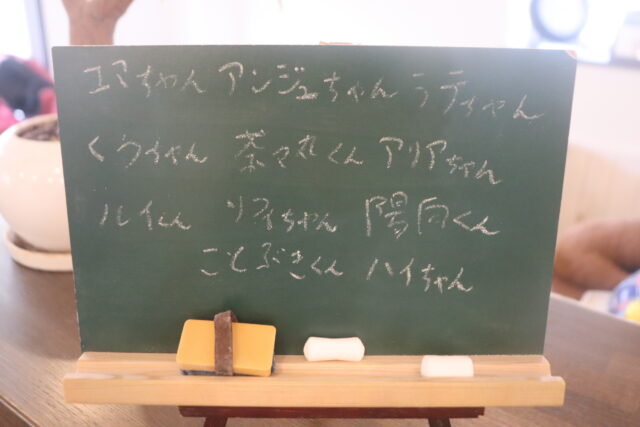 エマちゃん アンジュちゃん ラテちゃん
くうちゃん 茶々丸くん アリアちゃん
ルイくん ソフィちゃん 陽向くん
ことぶきくん ハイちゃん